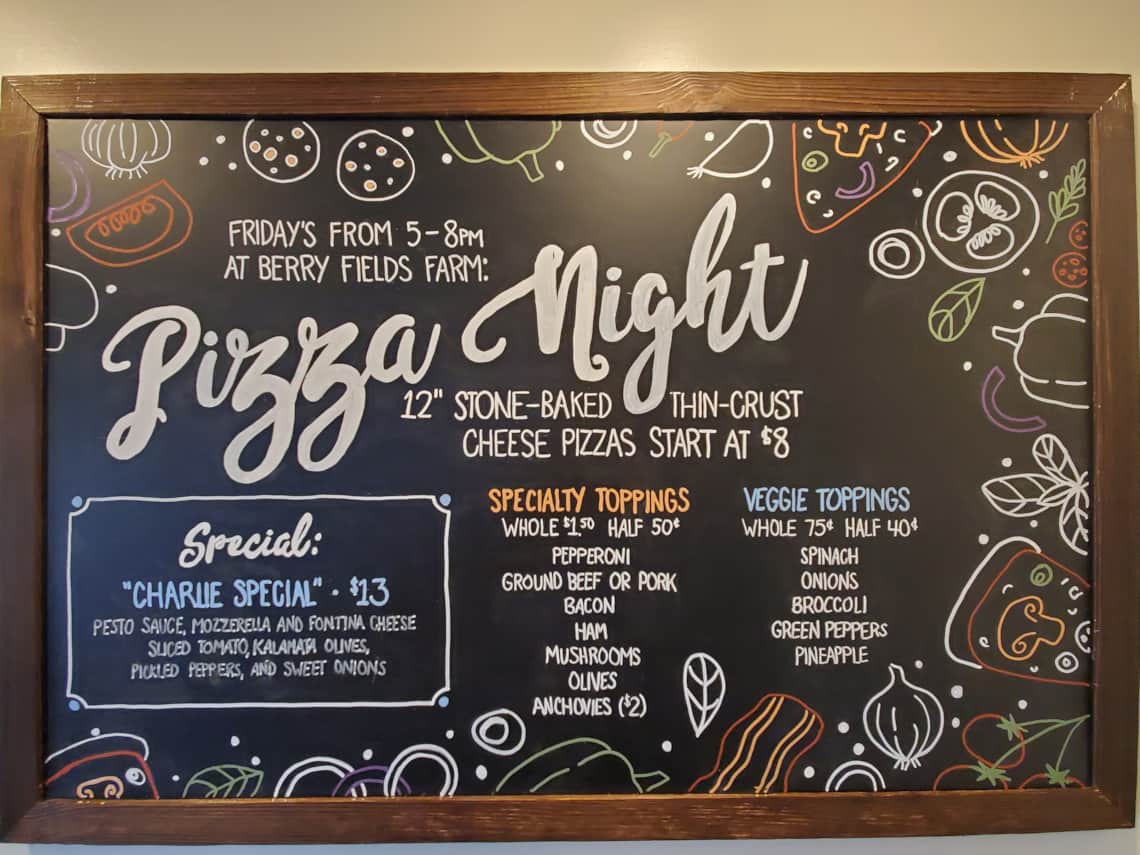 FRIDAY'S FROM 5-8PM
AT BERRY FIELDS FARM:
Pizza Night
12" STONE-BAKED THIN-CRUST
CHEESE PIZZAS START AT $8
Special:
"CHARLIE SPECIAL" · $13
PESTO SAUCE, MOZZERELLA AND FONTINA CHEESE
SLICED TOMATO, KALAMATA OLIVES,
PICKLED PEPPERS, AND SWEET ONIONS
SPECIALTY TOPPINGS
WHOLE $1.50 HALF 50¢
PEPPERONI
GROUND BEEF OR PORK
BACON
HAM
MUSHROOMS
OLIVES
ANCHOVIES ($2)
VEGGIE TOPPINGS
WHOLE 75¢ HALF 40¢
SPINACH
ONIONS
BROCCOLI
GREEN PEPPERS
PINEAPPLE